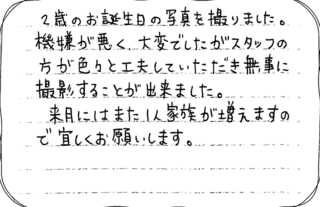 2歳のお誕生日の写真を撮りました。
機嫌が悪く、大変でしたがスタッフの
方が色々と工夫していただき無事に
撮影することが出来ました。
来月にはまた1人家族が増えますの
で宜しくお願いします。